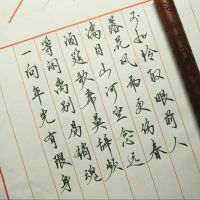 一向年光有限身
等闲離别易銷魂
酒筵歌席莫辞频
满目山河空念远
落花风雨更伤春
不如怜取眼前人